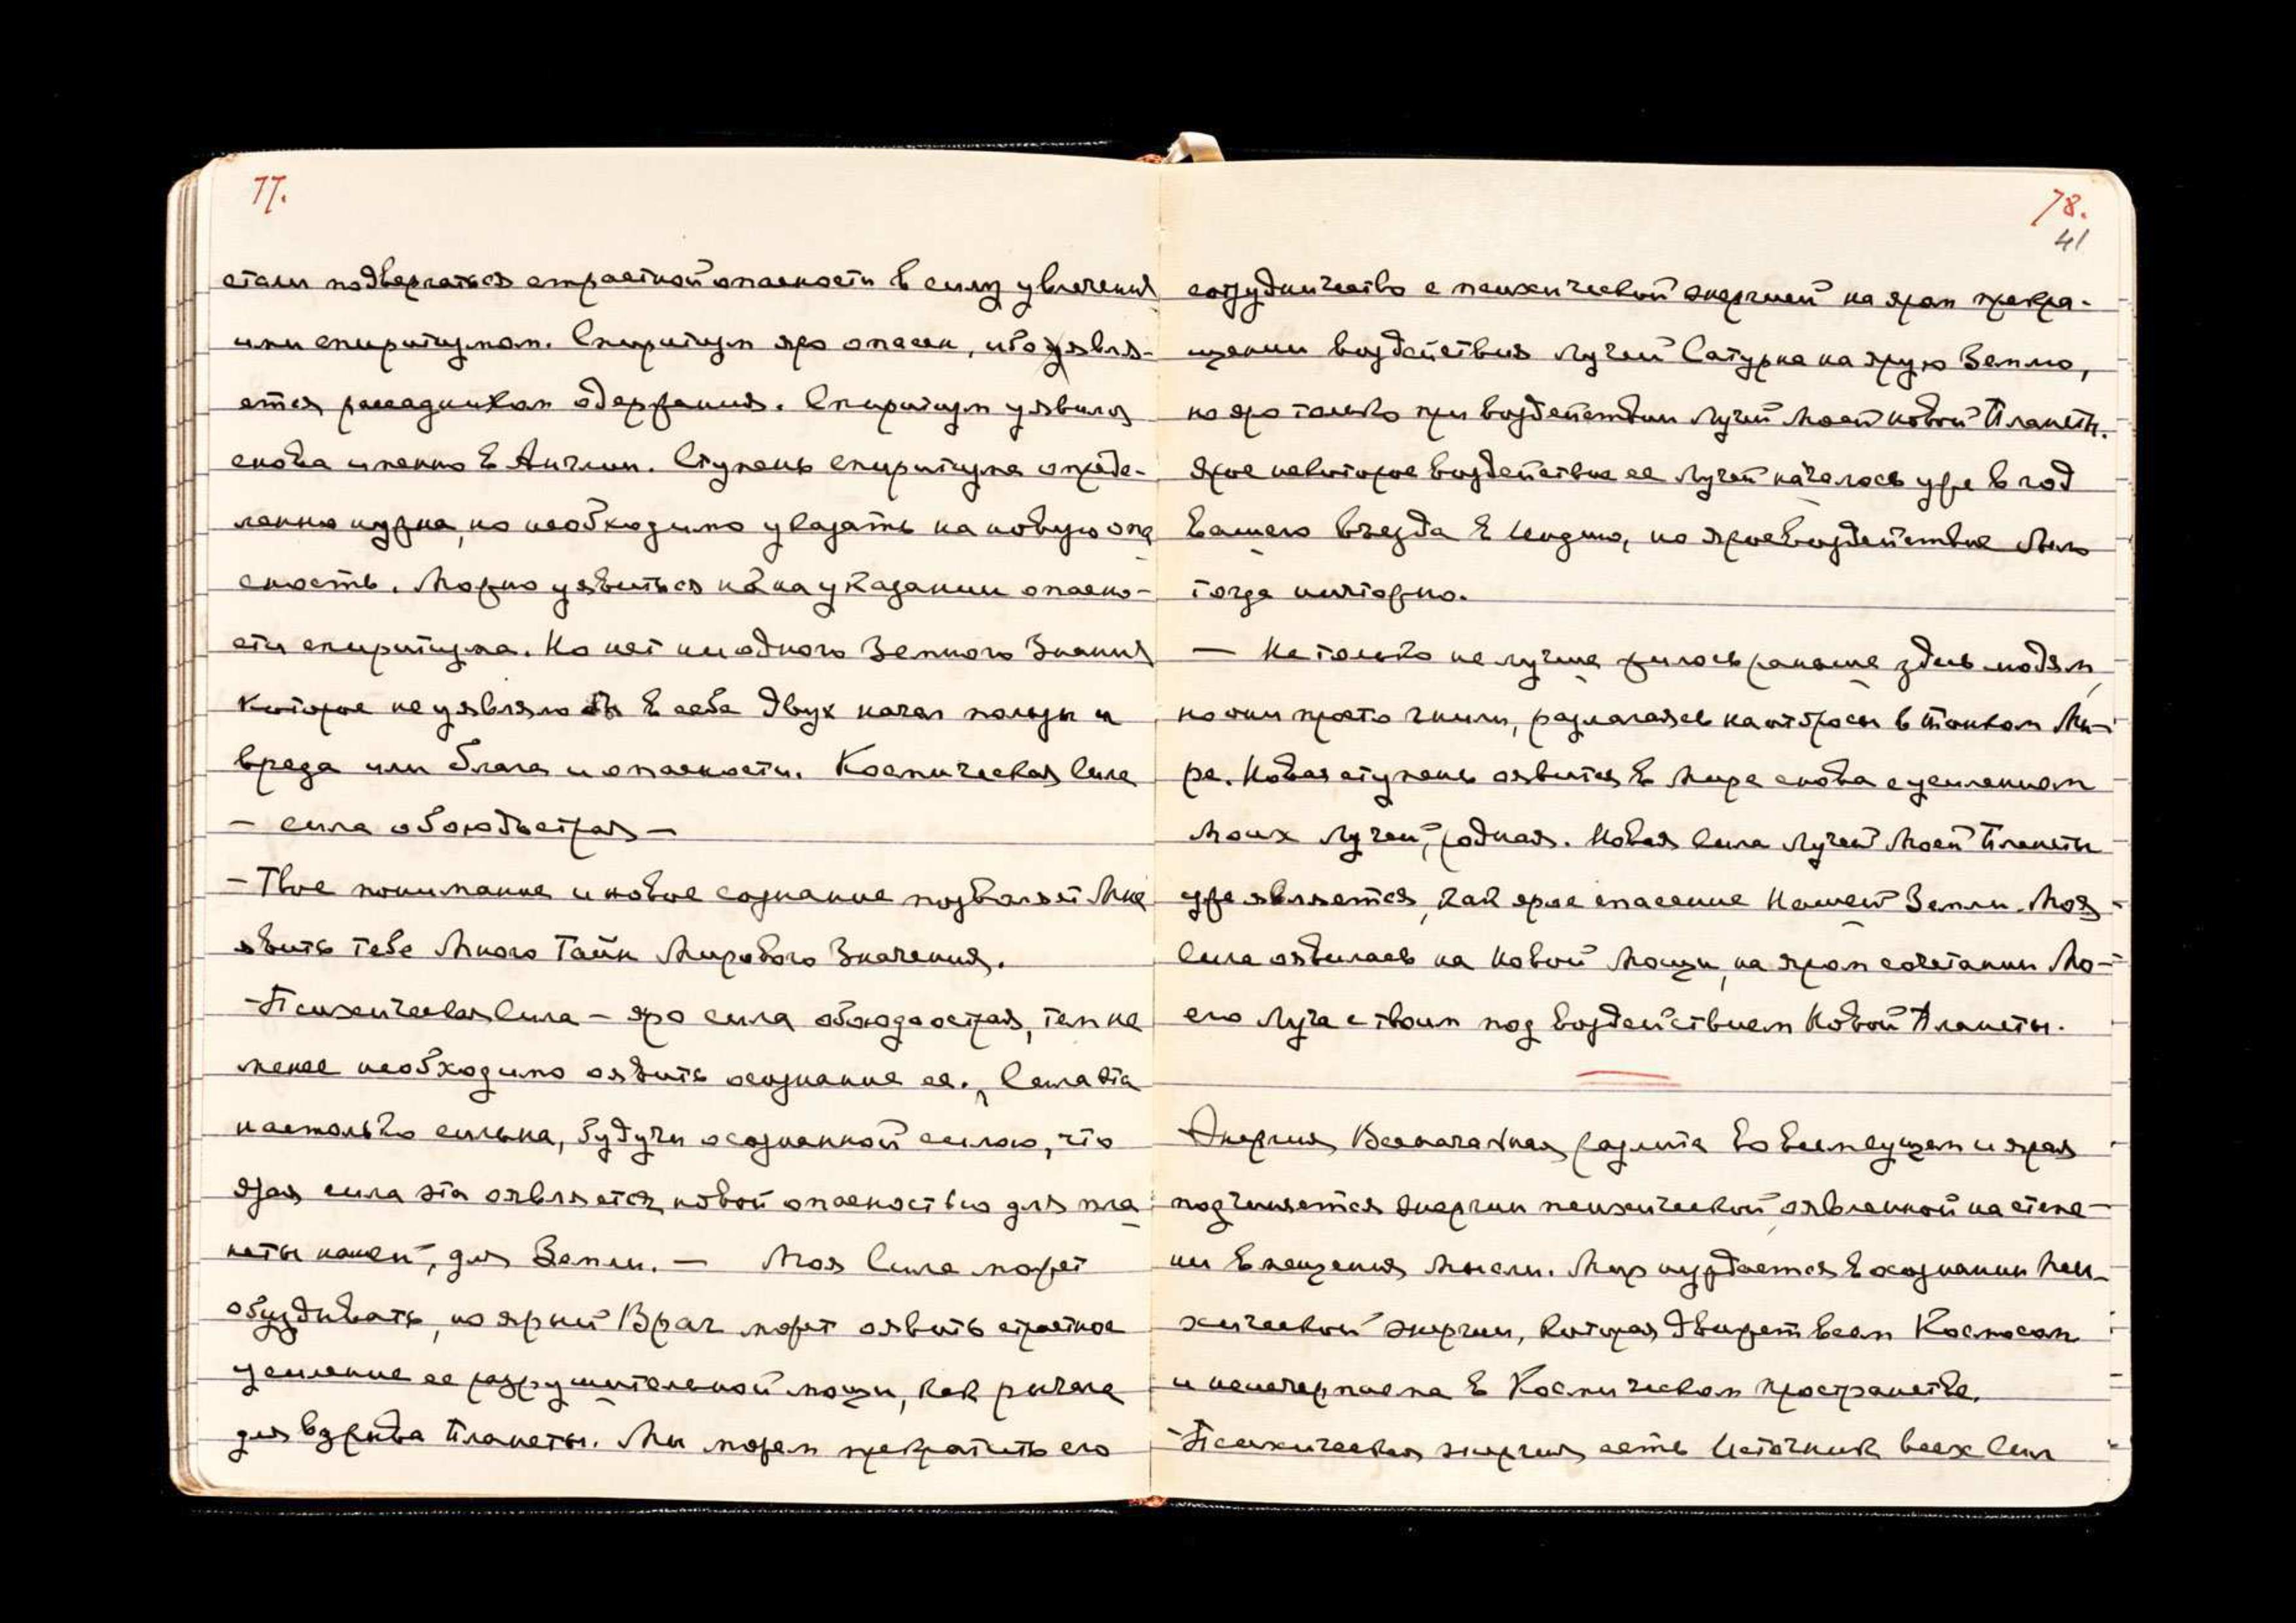 77.
стали подвергаться страстной опасности в силу увлечения
ими спиритизмом. Спиритизм яро опасен, ибо явля-
ется рассадником одержания. Спиритизм уявился
снова именно в Англии. Ступень спиритизма опреде-
ленно нужна, но необходимо указать на новую опа
сность. Можно уявиться на указании опасно-
сти спиритизма. Но нет ни одного Земного Знания
которое не уявляло бы в себе двух начал пользы и
вреда или блага и опасности. Космическая Сила
— сила обоюдоострая —
— Твое понимание и новое сознание позволяет Мне
явить тебе Много Тайн Мирового Значения.
— Психическая Сила — яро сила обоюдоострая, тем не
менее необходимо оявить осознание ее. Сила эта
настолько сильна, будучи осознанной силою, что
ярая сила эта оявляется новой опасностью для пла
неты нашей, для Земли. — Моя Сила может
обуздывать, но ярый Враг может оявить страстное
усиление ее разрушительной мощи, как рычага
для взрыва Планеты. Мы можем прекратить его
78.
41
сотрудничество с психической энергией на яром прекра-
щении воздействия Лучей Сатурна на ярую Землю,
но яро только при воздействии Лучей Моей новой Планеты.
Ярое некоторое воздействие ее Лучей началось уже в год
вашего въезда в Индию, но ярое воздействие было
тогда ничтожно.
— Не только не лучше жилось раньше здесь людям,
но они просто гнили, разлагаясь на отбросы в Тонком Ми-
ре. Новая ступень оявится в Мире снова с усилением
Моих Лучей, родная. Новая Сила Лучей Моей Планеты
уже является, как ярое спасение Нашей Земли. Моя
Сила оявилась на Новой Мощи, на яром сочетании Мо-
его Луча с твоим под воздействием Новой Планеты.
Энергия Всеначальная разлита во всем сущем и ярая
подчиняется энергии психической оявленной на степе-
ни вмещения Мысли. Мир нуждается в осознании Пси-
хической энергии, которая движет всем Космосом
и неисчерпаема в Космическом пространстве.
— Психическая энергия есть Источник всех Сил